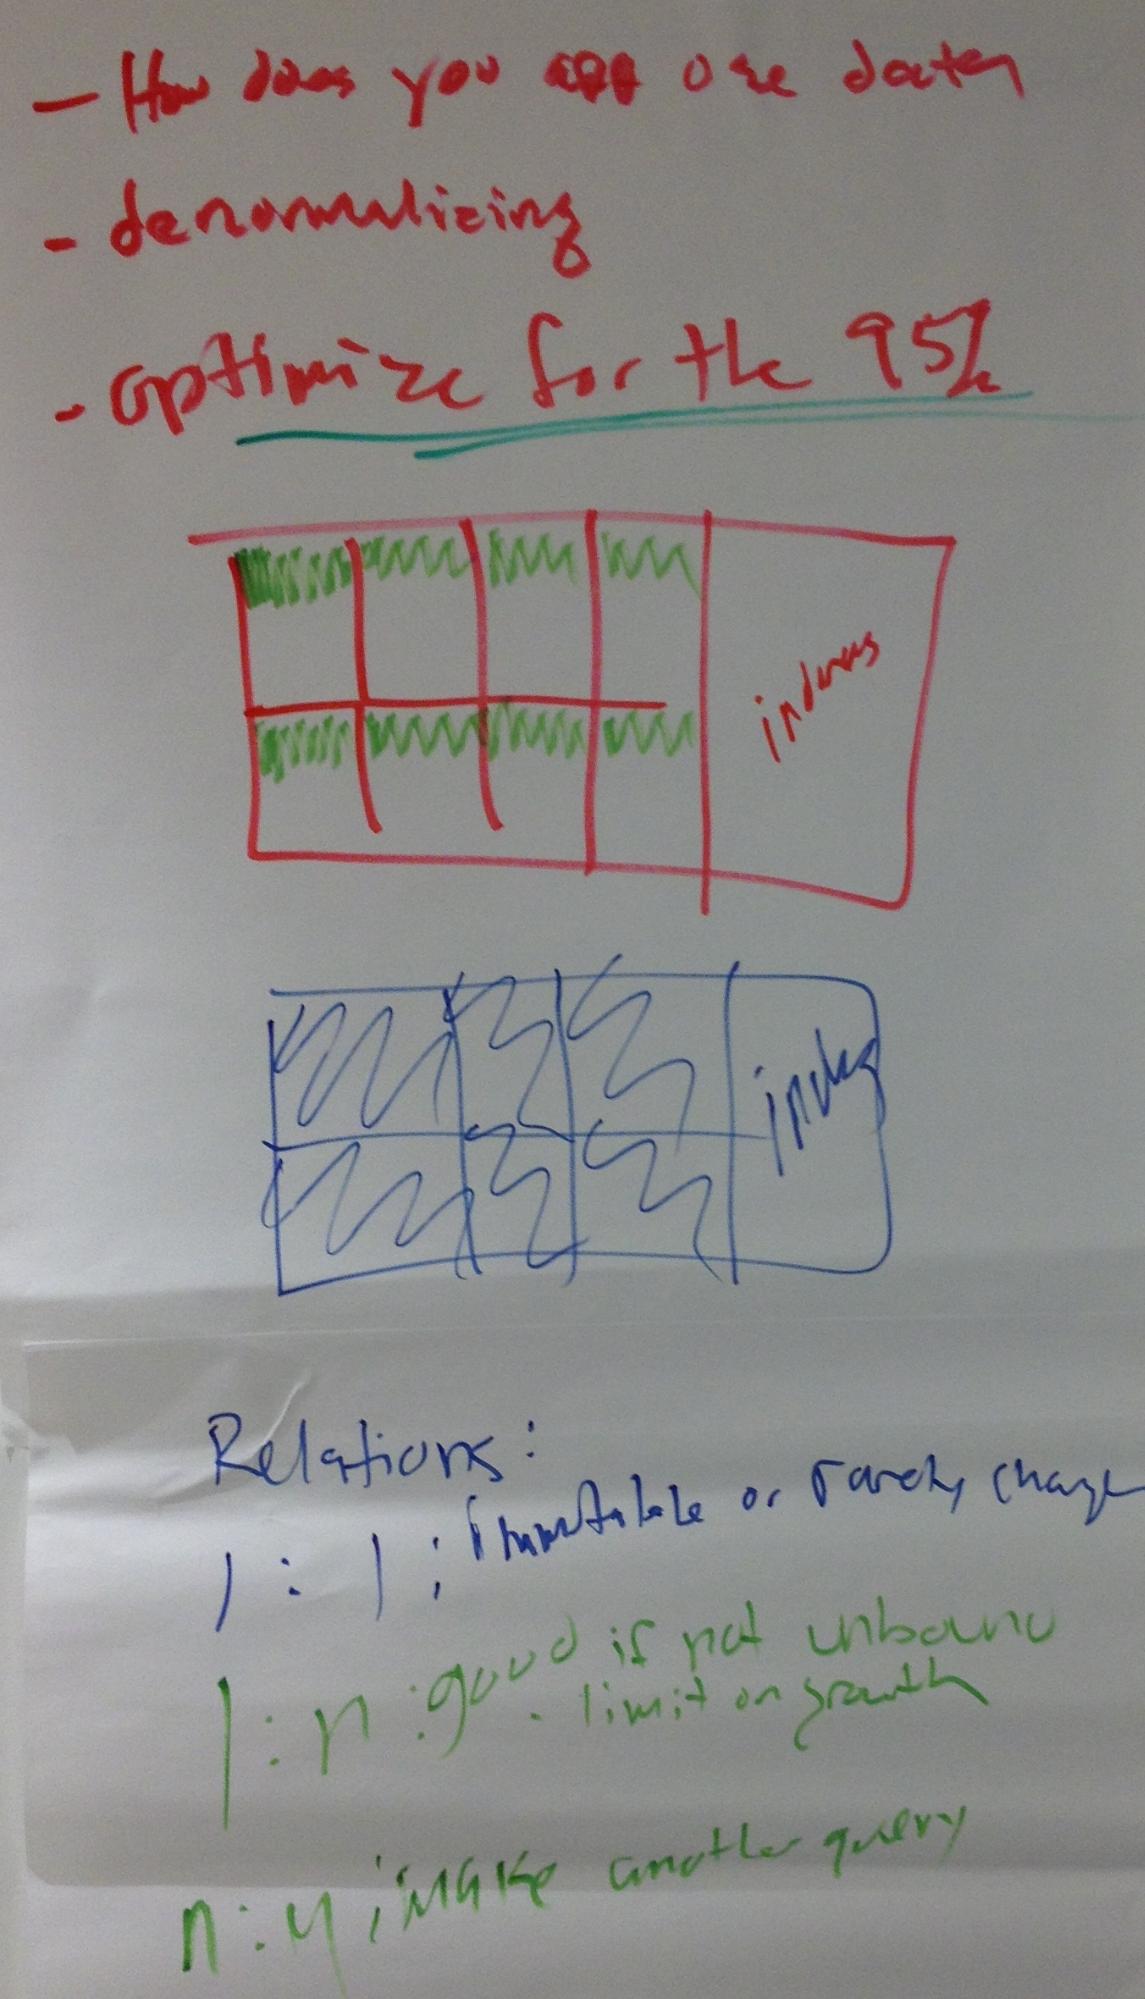 - How does you app use data
- denormalizing
- optimize for the 95%
indexes
index
Relations:
1 : 1 ; immutable or rarely change
1 : n : good if not unbound
- limit on growth
n : y ; make another query